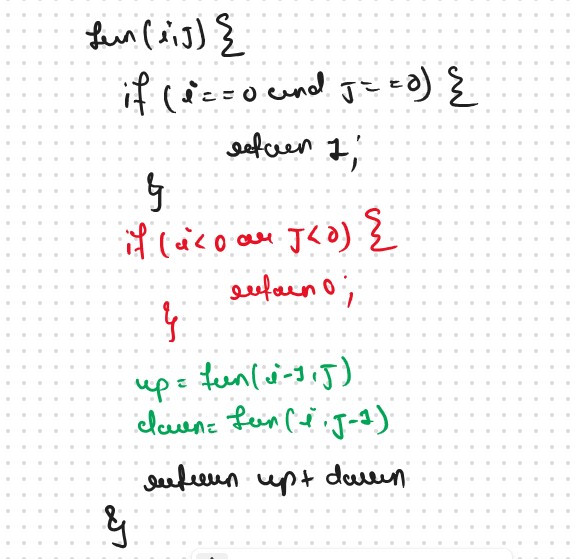 fun(i,J) {
if (i==0 and J==0) {
return 1;
}
if (i<0 or J<0) {
return 0;
}
up = fun(i-1,J)
down= fun(i,J-1)
return up+ down
}